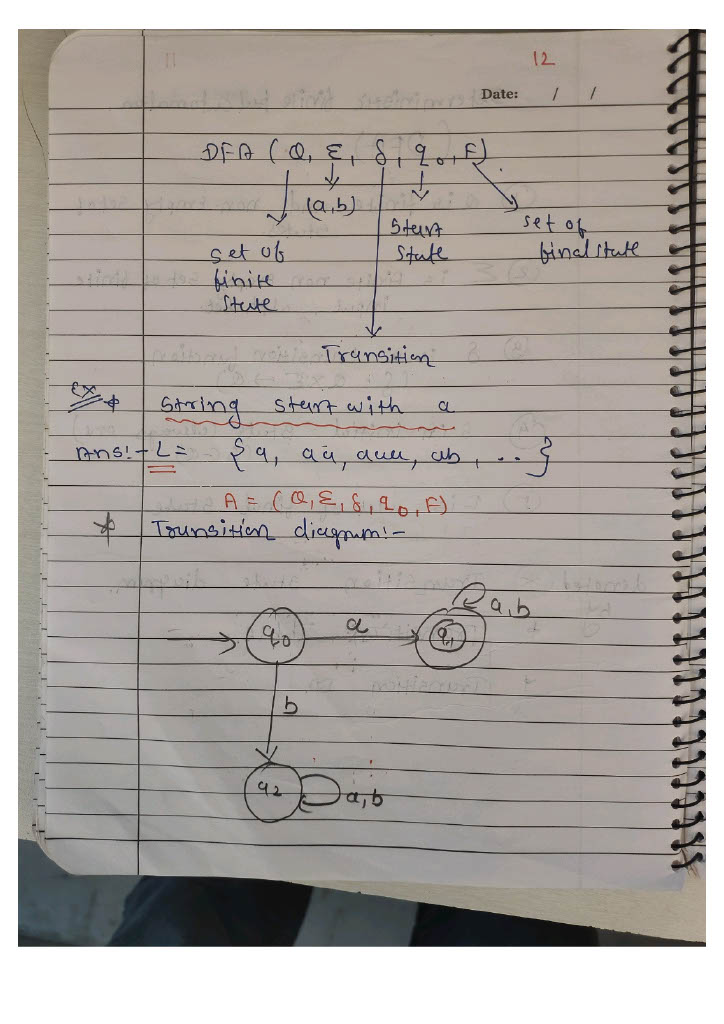 12
Date: / /
DFA (Q, Σ, δ, q0, F)
(a,b)
Start
state
set of
final state
set of
finite
state
Transition
Ex
String start with a
Ans:- L = {a, aa, aaa, ab, ..}
A = (Q, Σ, δ, q0, F)
* Transition diagram:-
a,b
q0
a
q1
b
q2
a,b